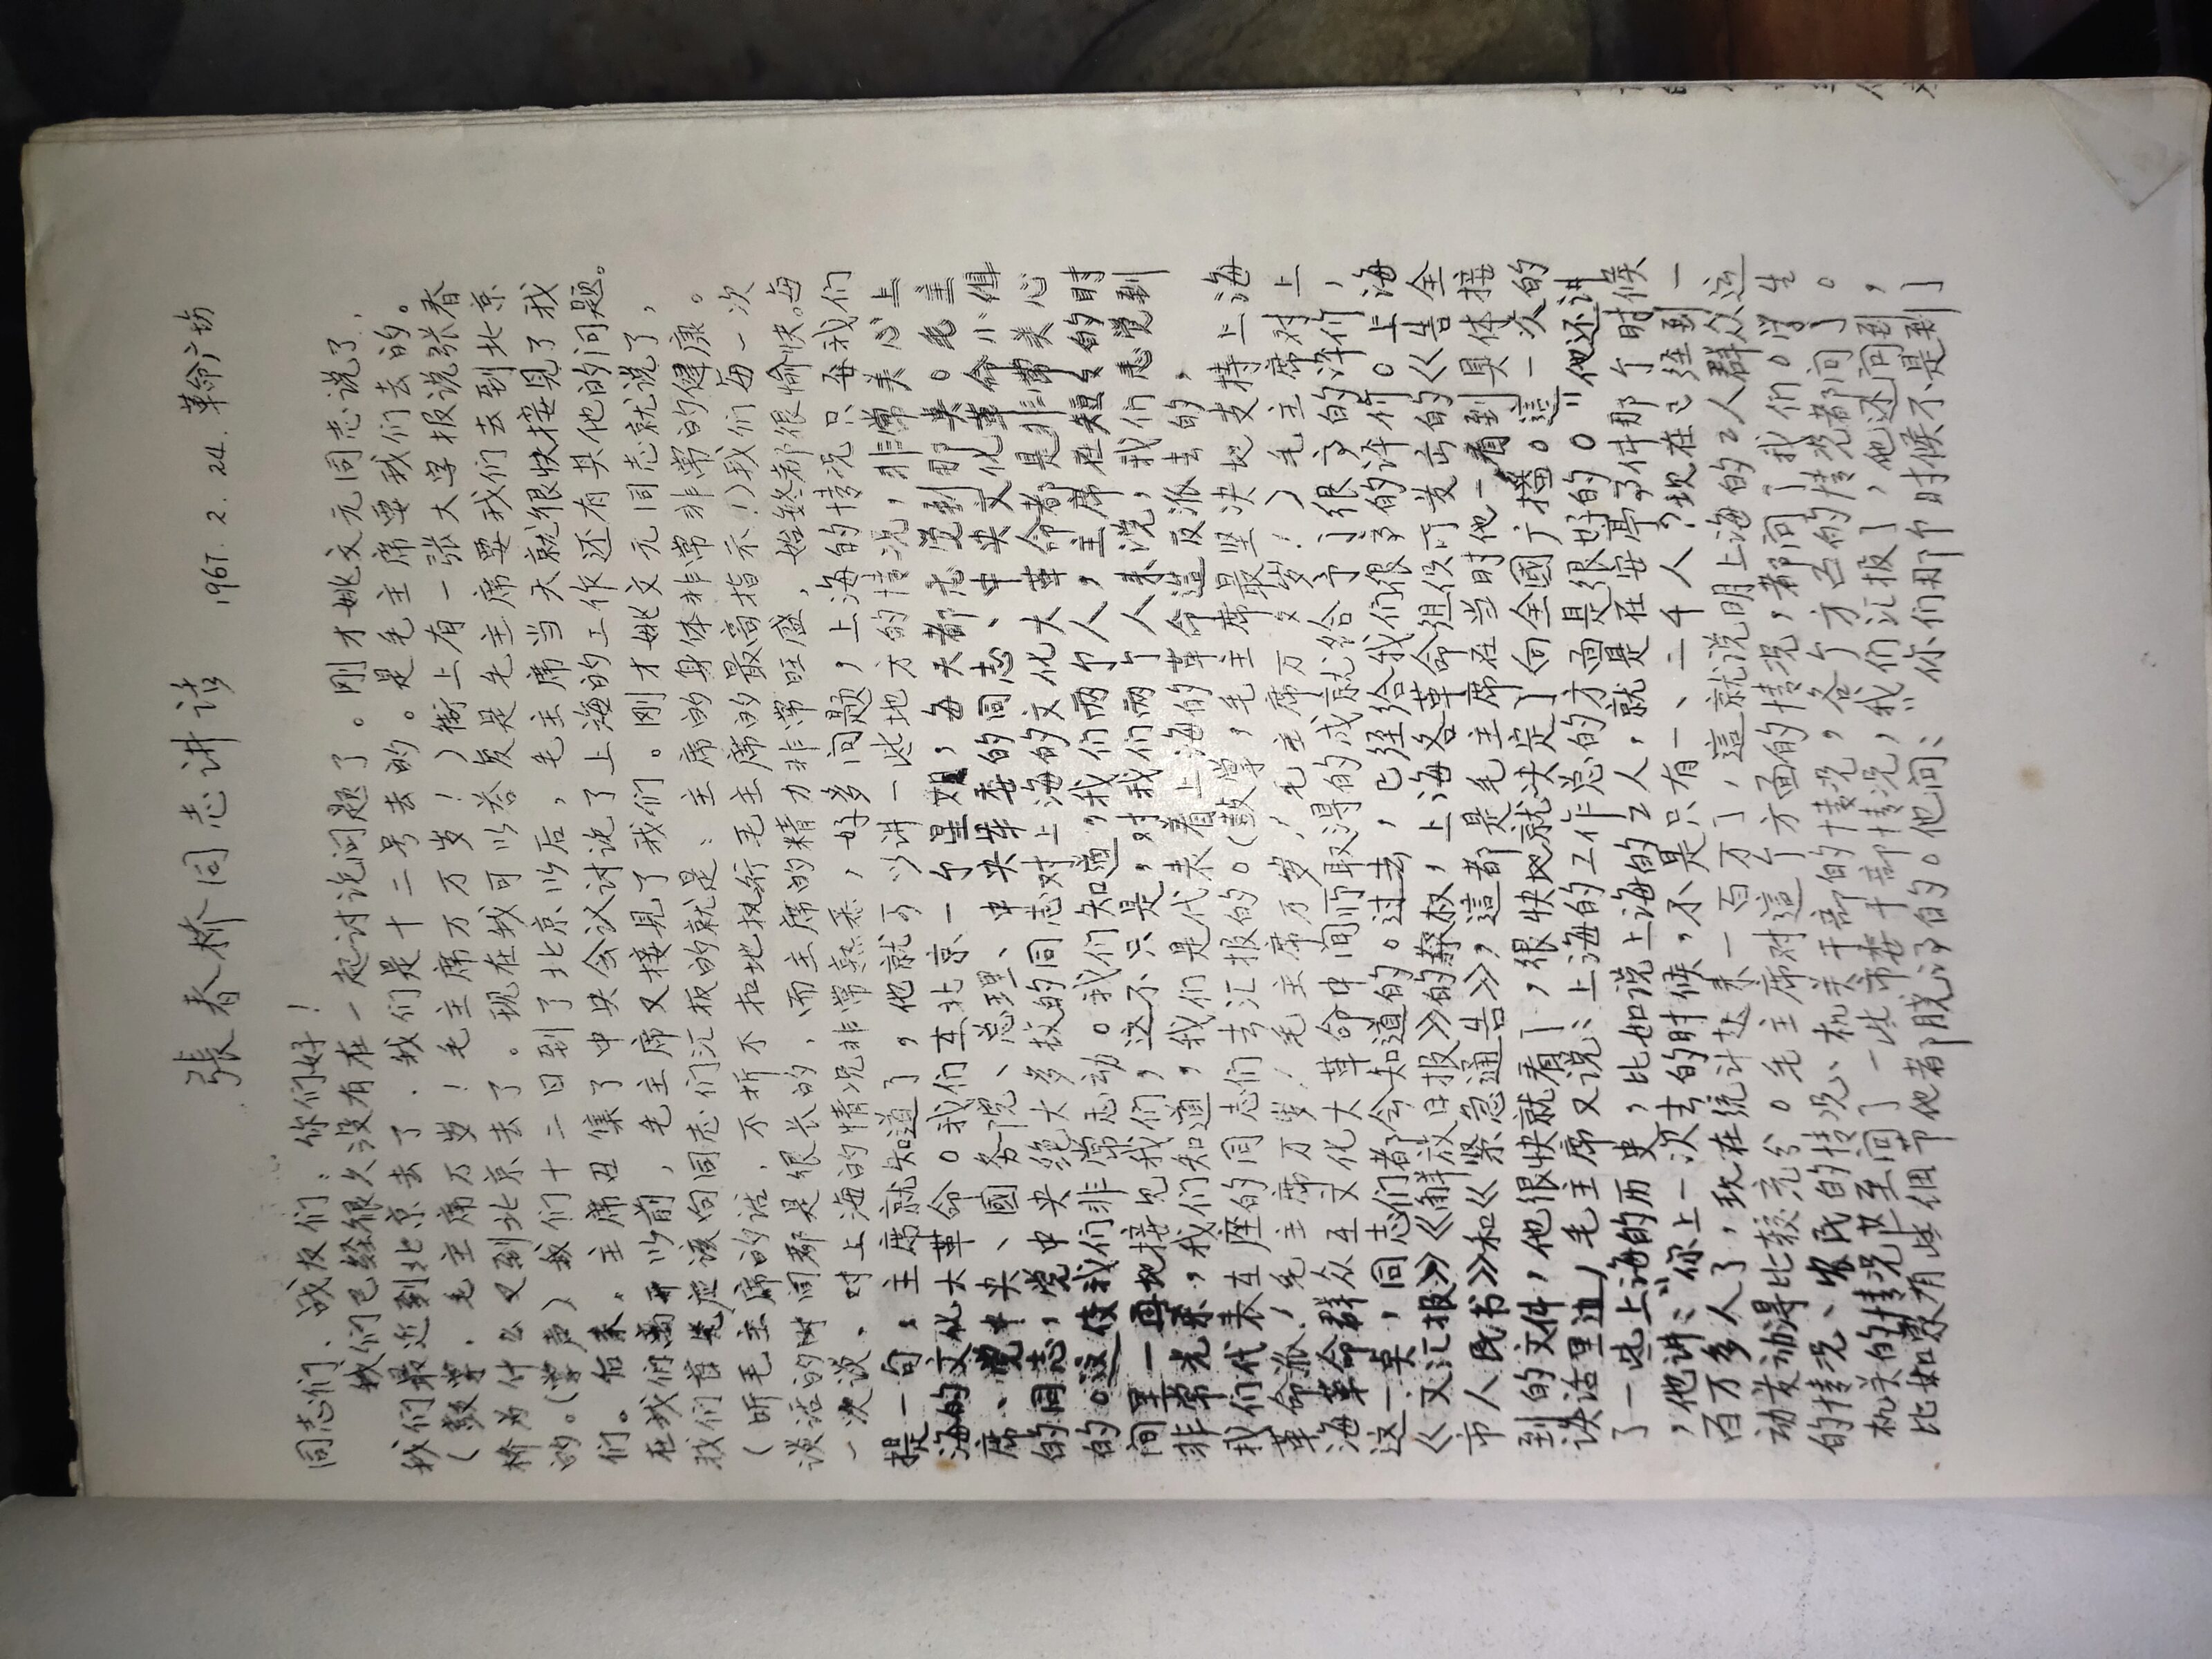 張春桥同志讲话 1967. 2. 24. 革命广场
同志们、战友们：你们好！
我们已经很久没有在一起讨论问题了。刚才姚文元同志说了，
我们最近到北京去了．我们是十二号去的。是毛主席要我们去的。
（鼓掌．毛主席万岁！毛主席万万岁！）街上有一张大字报说张春
桥为什么又到北京去了。现在我可以答复是毛主席要我们去到北京
的。（掌声）我们十二日到了北京以后，毛主席当天就很快接見了我
们。后来．主席召集了中央会议讨论了上海的工作还有其他的问题。
在我们离开以前，毛主席又接見了我们。刚才姚文元同志就说了，
我们首先应该向同志们汇报的就是：主席的身体非常非常的健康。
（听毛主席的话．不折不扣地执行毛主席的最高指示！）我们每一次
谈话的时间都是很长的，而主席的精力非常旺盛，始終都很愉快。每
一次谈、对上海的情况非常熟悉，好多问题，上海的情况只要我们
提一句，主席就知道了，他就可以讲一些地方的情况，非常关心上
海的文化大革命。我们在北京一个星期，每天都感觉到那奌。毛主
席、党中央、國务院、总理、中央军委的同志、中央文化革命小组
的同志，党中央绝大多数的同志对上海的文化大革命都是非常关心
的。这使我们非常感动。我们知道，我们两个人，主席在短短的时
间里一再地接见我们，这不只是，对我们两个人来说，我们感觉到
非常光荣，我们知道，我们是代表着上海的革命造反派去的，
我们代表在座的同志们去汇报的。（鼓掌，毛主席最坚决地支持上海
革命派！毛主席万岁！毛主席万岁！毛主席万万岁！）毛主席对上
海革命群众在文化大革命中间所取得的成就给予了很高的评价，
这一奌，同志们都会知道的。过去，已经给我们很高的评价。上海
《文汇报》《解放日报》的夺权，上海各革命组织所发出的《告全
市人民书》和《紧急通告》，這都是毛主席在当时他一看到具体接
到的文件，他很快就看了，很快地就决定了向全國广播。這一次的
谈话里边，毛主席又说：上海的工作总的方面是很好的。"他还讲
了一些上海的历史，比如说上海的工人，就是在安亭事件那个时候
，他讲："你上一次去的时候，不是只有一、二千人？现在已经到一
百万多人了，现在统计起来一百万了，這就说明上海的工人群众运
动发动得比较充分。毛主席对這个方面的情况，都问了我们。学生
的情况、农民的情况、机关干部的情况，各个方面的情况都问了。
机关的情况甚至问了一些市委干部情况，我们汇报了，他还问到，
比如有些细节他都晓得的。他问："你们那个时候不是到了